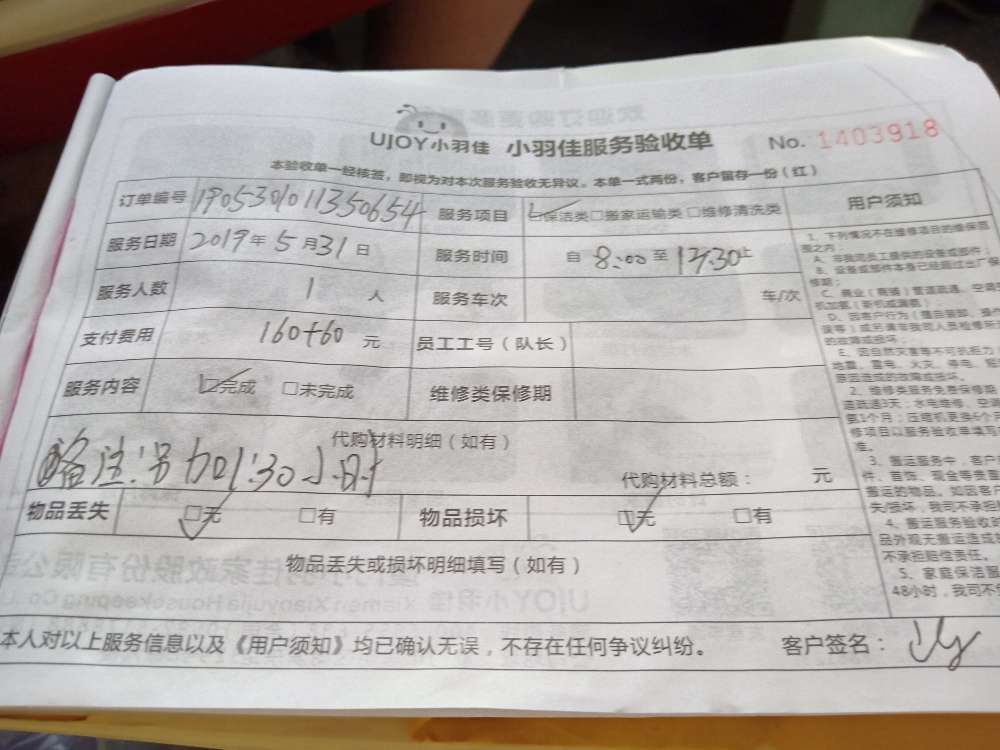 UJOY小羽佳 小羽佳服务验收单 No. 1403918
本验收单一经核签，即视为对本次服务验收无异议。本单一式两份，客户留存一份（红）
订单编号 19053010011350654 服务项目 保洁类□搬家运输类□维修清洗类 用户须知
服务日期 2019年5月31日 服务时间 自 8:00 至 17:30止
服务人数 1 人 服务车次 车/次
支付费用 160+60 元 员工工号（队长）
服务内容 完成 □未完成 维修类保修期
代购材料明细（如有）
加1:30小时
代购材料总额： 元
物品丢失 □无 □有 物品损坏 □无 □有
物品丢失或损坏明细填写（如有）
本人对以上服务信息以及《用户须知》均已确认无误，不存在任何争议纠纷。 客户签名：
1、下列情况不在维修项目的维保范
围之内：
A、非我司员工提供的设备或部件
B、设备或部件本身已经超过出厂保
修期；
C、商业（商铺）管道疏通、空调
D、因客户行为（擅自装卸、操作
误等）或另请非我司人员检修所
的故障或损坏；
E、因自然灾害等不可抗拒力
地震、雷电、火灾、停电、
原因造成的故障或损坏。
2、维修类服务免费保修期
道疏通3天；水电维修、空调
修项目以服务验收单填写
准。
3、搬运服务中，客户
件、首饰、现金等贵重
搬运的物品，如因客户
失/损坏，我司不承担
4、搬运服务验收
品外观无搬运造成
不承担赔偿责任。
5、家庭保洁服
48小时，我司不